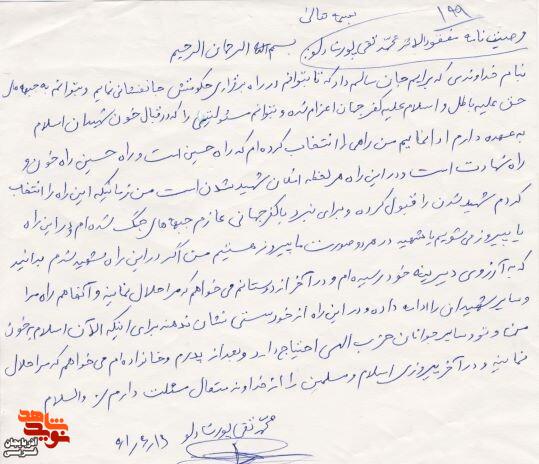 بسمه تعالی
۱۹۹
وصیت نامه مفقودالاثر محمد تقی پورشادلو
بسم الله الرحمان الرحیم
بنام خداوندی که برایم جان سالم داد که تا بتوانم در راه برقراری حکومتش جانفشانی نمایم و بتوانم به جبهه های
حق علیه باطل و اسلام علیه کفر جهان اعزام شده و بتوانم مسئولیتی را که در قبال خون شهیدان اسلام
به عهده دارم ادا نمایم من راهی را انتخاب کرده ام که راه حسین است و راه حسین راه خون و
راه شهادت است و در این راه هر لحظه امکان شهید شدن است من زمانیکه این راه را انتخاب
کردم شهید شدن را قبول کرده و برای نبرد با کفر جهانی عازم جبهه های جنگ شده ام در این راه
یا پیروز می شویم یا شهید در هر دو صورت ما پیروز هستیم من اگر در این راه شهید شدم بدانید
که به آرزوی دیرینه خود رسیده ام و در آخر از دوستانم می خواهم که مرا حلال نمایند و آنها هم راه مرا
و سایر شهیدان را ادامه داده و در این راه از خود سستی نشان ندهند برای اینکه الآن اسلام به خون
من و تو و سایر جوانان حزب الهی احتیاج دارد و بعد از پدرم و خانواده ام می خواهم که مرا حلال
نمایند و در آخر پیروزی اسلام و مسلمین را از خداوند متعال مسئلت دارم والسلام
محمد تقی پورشادلو
۶۱/۶/۱۶
شاهد
نوید
آذربایجان
غربی